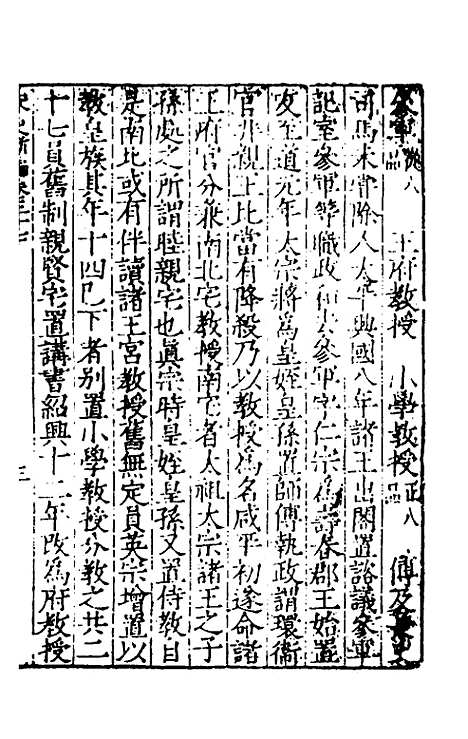 參軍 八 王府教授 小學教授 正八品 傅及長史
司馬未嘗除人太平興國八年諸王出閣置諮議參軍
記室參軍等職政和 參軍字仁宗為壽春郡王始置
友至道元年太宗將為皇姪皇孫置師傅執政謂環衞
官非親王比當有降殺乃以教授為名咸平初遂命諸
王府官分兼南北宅教授南宅者太祖太宗諸王之子
孫處之所謂睦親宅也眞宗時皇姪皇孫又置侍教自
是南北或有伴讀諸王宮教授舊無定員英宗增置以
教皇族其年十四已下者別置小學教授分教之共二
十七員舊制親賢宅置講書紹興十二年改為府教授
宋史新編卷三十七 三